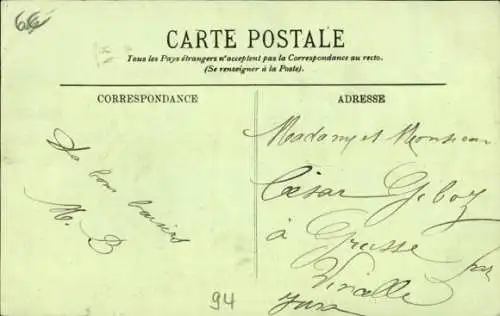 CARTE POSTALE
Tous les Pays étrangers n'acceptent pas la Correspondance au recto.
(Se renseigner à la Poste).
CORRESPONDANCE
ADRESSE
bons baisers
M. B
Madame et Monsieur
César Giboz
à Grusse par
Vincelles
Jura
94